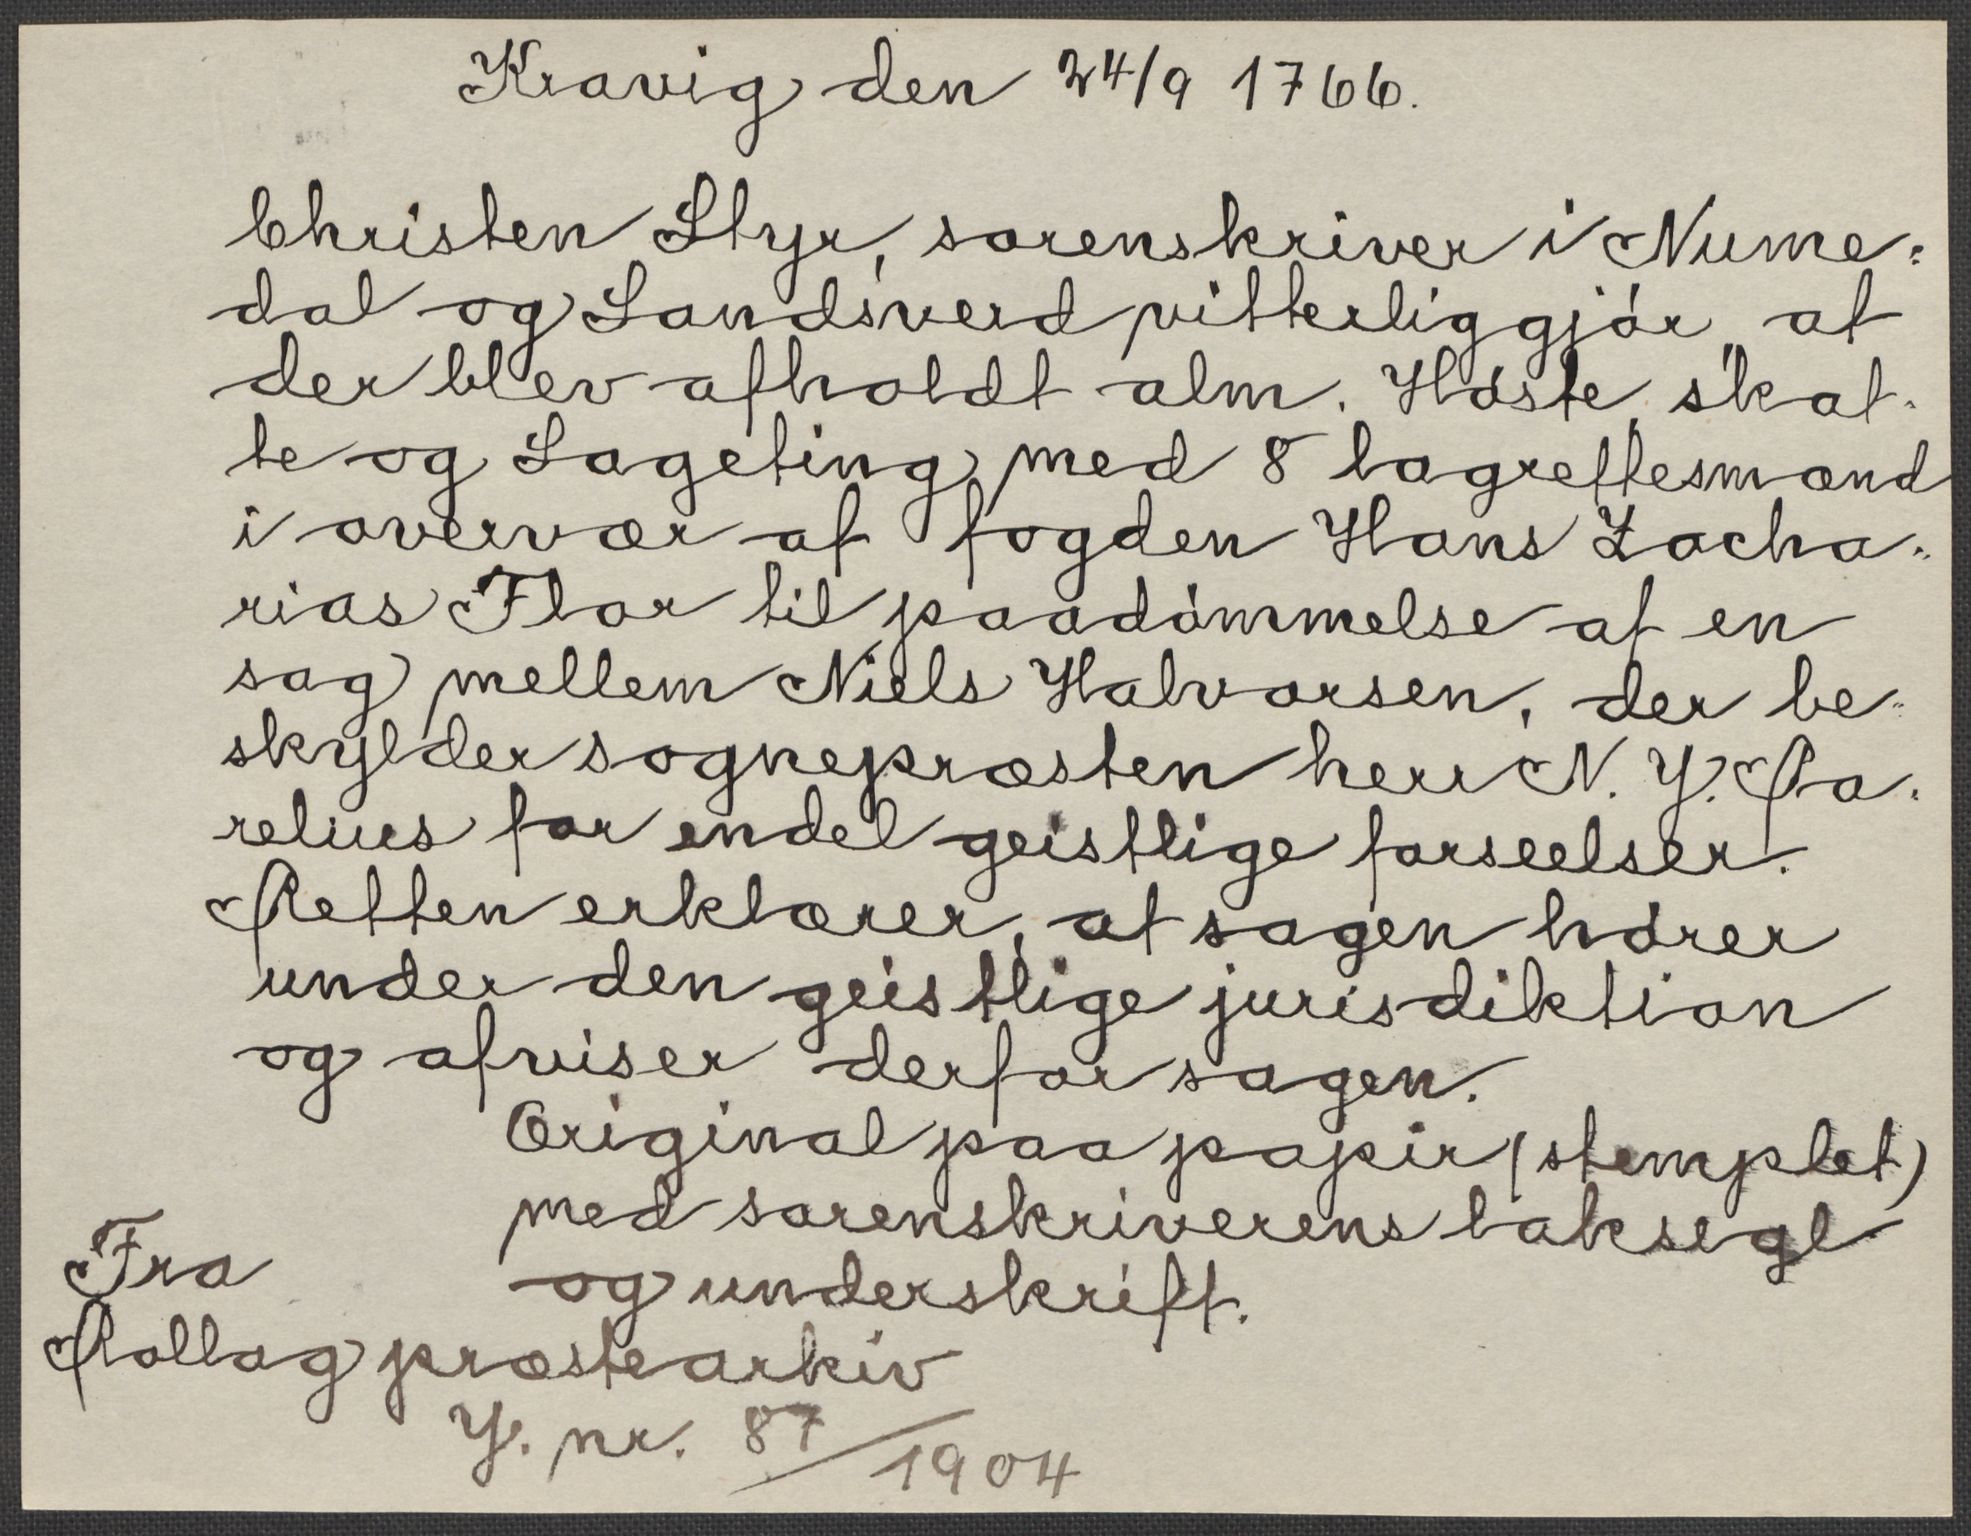 Kravig den 24/9 1766.
Christen Styr, sorenskriver i Nume-
dal og Sandsverd vitterliggjör, at
der blev afholdt alm. Höste, skat-
te og Sageting med 8 lagrettesmænd
i overvær af fogden Hans Zacha-
rias Flor til paadömmelse af en
sag mellem Niels Halvorsen, der be-
skylder sognepræsten herr N. J. Pa-
relius for endel geistlige forseelser.
Retten erklærer, at sagen hörer
under den geistlige jurisdiktion
og afviser derfor sagen.
Original paa papir (stemplet)
med sorenskriverens laksegl
og underskrift.
Fra
Rollag præstearkiv
J. nr. 87/1904